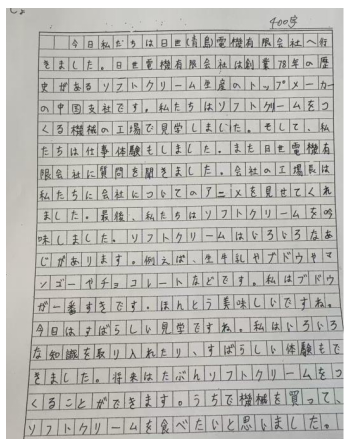 400字
今日私たちは日世(青島)電機有限会社へ行
きました。日世電機有限会社は創業78年の歴
史があるソフトクリーム生産のトップメーカー
の中国支社です。私たちはソフトクリームをつ
くる機械の工場で見学しました。そして、私
たちは仕事体験もしました。また日世電機有
限会社に質問を聞きました。会社の工場長は
私たちに会社についてのアニメを見せてくれ
ました。最後、私たちはソフトクリームを吟
味しました。ソフトクリームはいろいろなあ
じがあります。例えば、生牛乳やブドウやマ
ンゴーやチョコレートなどです。私はブドウ
が一番すきです。ほんとう美味しいですね。
今日はすばらしい見学ですね。私はいろいろ
な知識を取り入れたり、すばらしい体験もで
きました。将来はたぶんソフトクリームをつ
くることができます。うちで機械を買って、
ソフトクリームを食べたいと思いました。